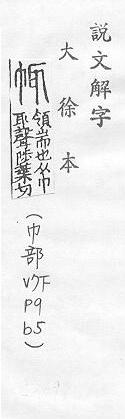 說文解字
大徐本
㡇
領耑也从巾
耴聲陟葉切
(巾部V7下p9b5)